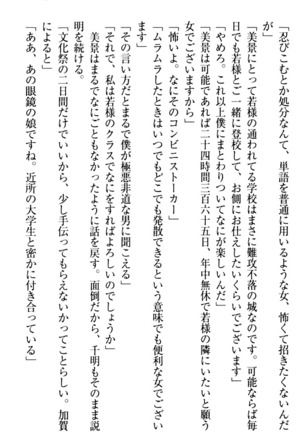 「忍びこむとか処分なんて、単語を普通に用いるような女、怖くて招きたくないんだ
が」
「美景にとって若様の通われてる学校はまさに難攻不落の城なのです。可能ならば毎
日でも若様とご一緒に登校して、お側にお仕えしたいくらいでございます」
「やめろ。これ以上僕にまとわりついてなにが楽しいんだ」
「美景は可能であれば二十四時間三百六十五日、年中無休で若様の隣にいたいと願う
女でございますから」
「怖いよ。なにそのコンビニストーカー」
「ムラムラしたときはいつでもどこでも発散できるという意味でも便利な女でござい
ます」
「その言い方だとまるで僕が極悪非道な男に聞こえる」
「それで、私は若様のクラスでなにをすればよろしいのでしょうか」
美景はまるでなにごともなかったように話を戻す。面倒だから、千明もそのまま説
明を続ける。
「文化祭の二日間だけでいいから、少し手伝ってもらえないかってことらしい。加賀
によると」
「ああ、あの眼鏡の娘ですね。近所の大学生と密かに付き合っている」